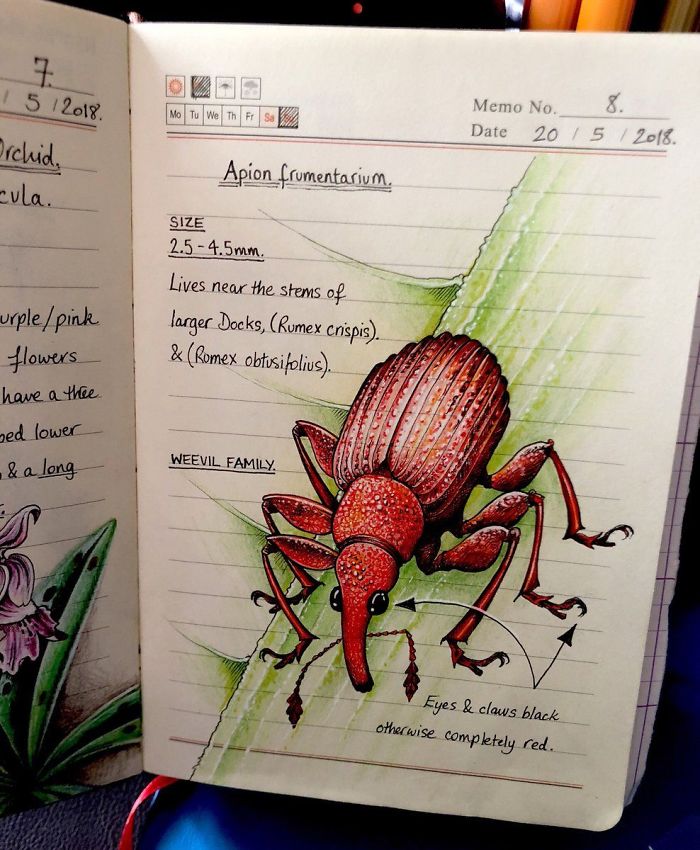 7.
/ 5 / 2018.
Orchid.
cula.
urple/pink
flowers
have a three
ped lower
, & a long
Mo Tu We Th Fr Sa
Memo No. 8.
Date 20 / 5 / 2018.
Apion frumentarium.
SIZE
2.5-4.5mm.
Lives near the stems of
larger Docks, (Rumex crispis).
& (Romex obtusifolius).
WEEVIL FAMILY.
Eyes & claws black
otherwise completely red.